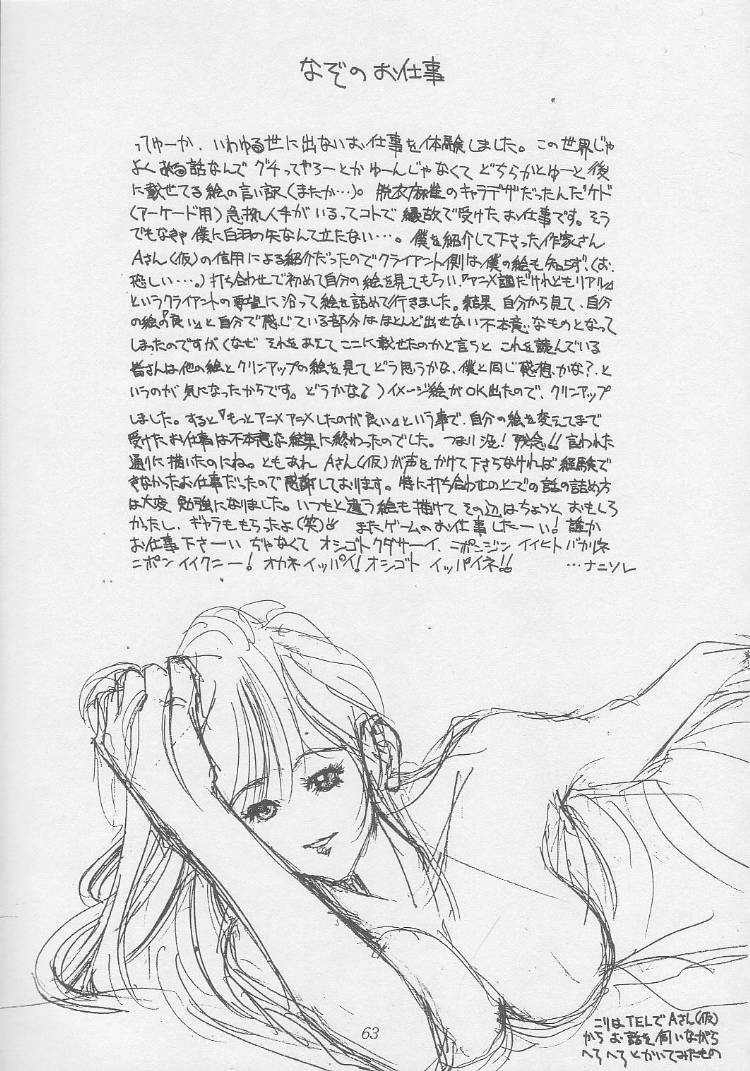 なぞのお仕事
ってゆーか、いわゆる世に出ないお仕事を体験しました。この世界じゃ
よくある話なんで グチってやろーとかゆーんじゃなくて どちらかとゆーと 後
に載せてる絵の言い訳(またか…)。脱衣麻雀のキャラデザだったんだケド
(アーケード用)急拠人手がいるってコトで 縁故で受けた お仕事です。そう
でもなきゃ 僕に白羽の矢なんて立たない…。僕を紹介して下さった作家さん
Aさん(仮)の信用による紹介だったのでクライアント側は僕の絵も知らず、(お、
恐しい…。)打ち合わせで初めて自分の絵を見てもらい、『アニメ調だけれどもリアル』
というクライアントの要望に、沿って絵を詰めて行きました。結果 自分から見て、自分
の絵の『良い』と自分で感じている部分はほとんど出せない不本意なものとなって
しまったのですが(なぜ それをあえて ここに載せたのかと言うと これを読んでいる
皆さんは他の絵とクリンアップの絵を見て どう思うかな、僕と同じ感想かな?と
いうのが 気になったからです。どうかな?)イメージ絵がOK出たので、クリンアップ
しました。すると『もっとアニメアニメしたのが良い』という事で、自分の絵を変えてまで
受けたお仕事は不本意な結果に終わったのでした。つまり没!残念!!言われた
通りに描いたのにね。ともあれ Aさん(仮)が声をかけて下さらなければ経験で
きなかったお仕事だったので感謝しております。特に打ち合わせの上での話の詰め方
は大変 勉強になりました。いつもと違う絵も描けて その辺はちょっと おもしろ
かったし、ギャラももらったよ(笑) またゲームのお仕事したーい!誰か
お仕事下さーい ぢゃなくて オシゴトクダサーイ、ニポンジン イイヒト バカリネ
ニポン イイクニー!オカネイッパイ!オシゴト イッパイネ!! …ナニソレ
63
こりはTELでAさん(仮)
からお話を伺いながら
へろへろとかいてみたもの